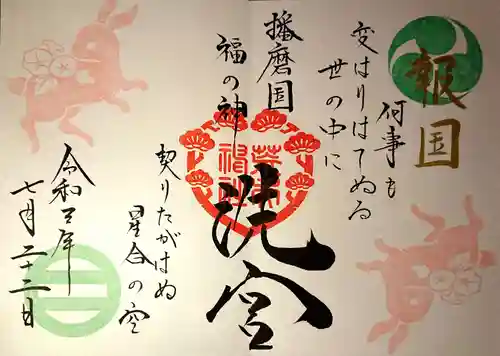 報国
何事も
変はりはてぬる
世の中に
播磨国
福の神
洗宮
契りたがはぬ
星合の空
令和五年
七月二十二日